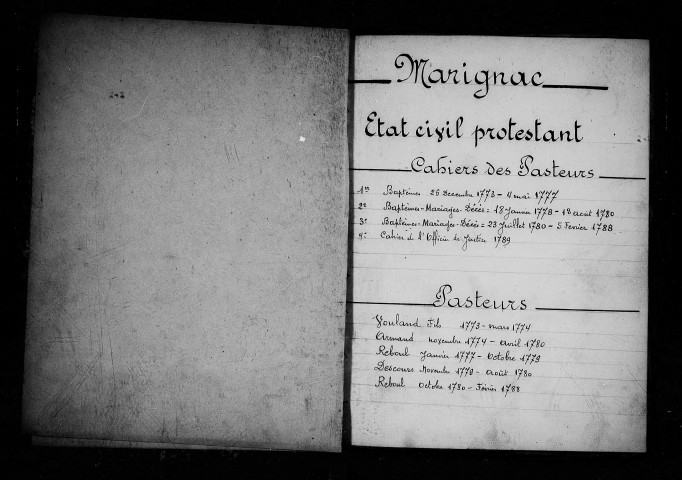 Marignac
Etat civil protestant
Cahiers des Pasteurs
1er Baptêmes 26 Decembre 1773 - 4 mai 1777
2e Baptêmes-Mariages-Décés = 18 Janvier 1778 - 12 août 1780
3e Baptêmes-Mariages-Décés = 23 Juillet 1780 - 5 Fevrier 1788
4e Cahier de l'Officier de Justice 1789
Pasteurs
Vouland Fils 1773 - mars 1774
Armand novembre 1774 - avril 1780
Reboul Janvier 1777 - Octobre 1779
Descours Novembre 1779 - Août 1780
Reboul Octobre 1780 - Février 1788